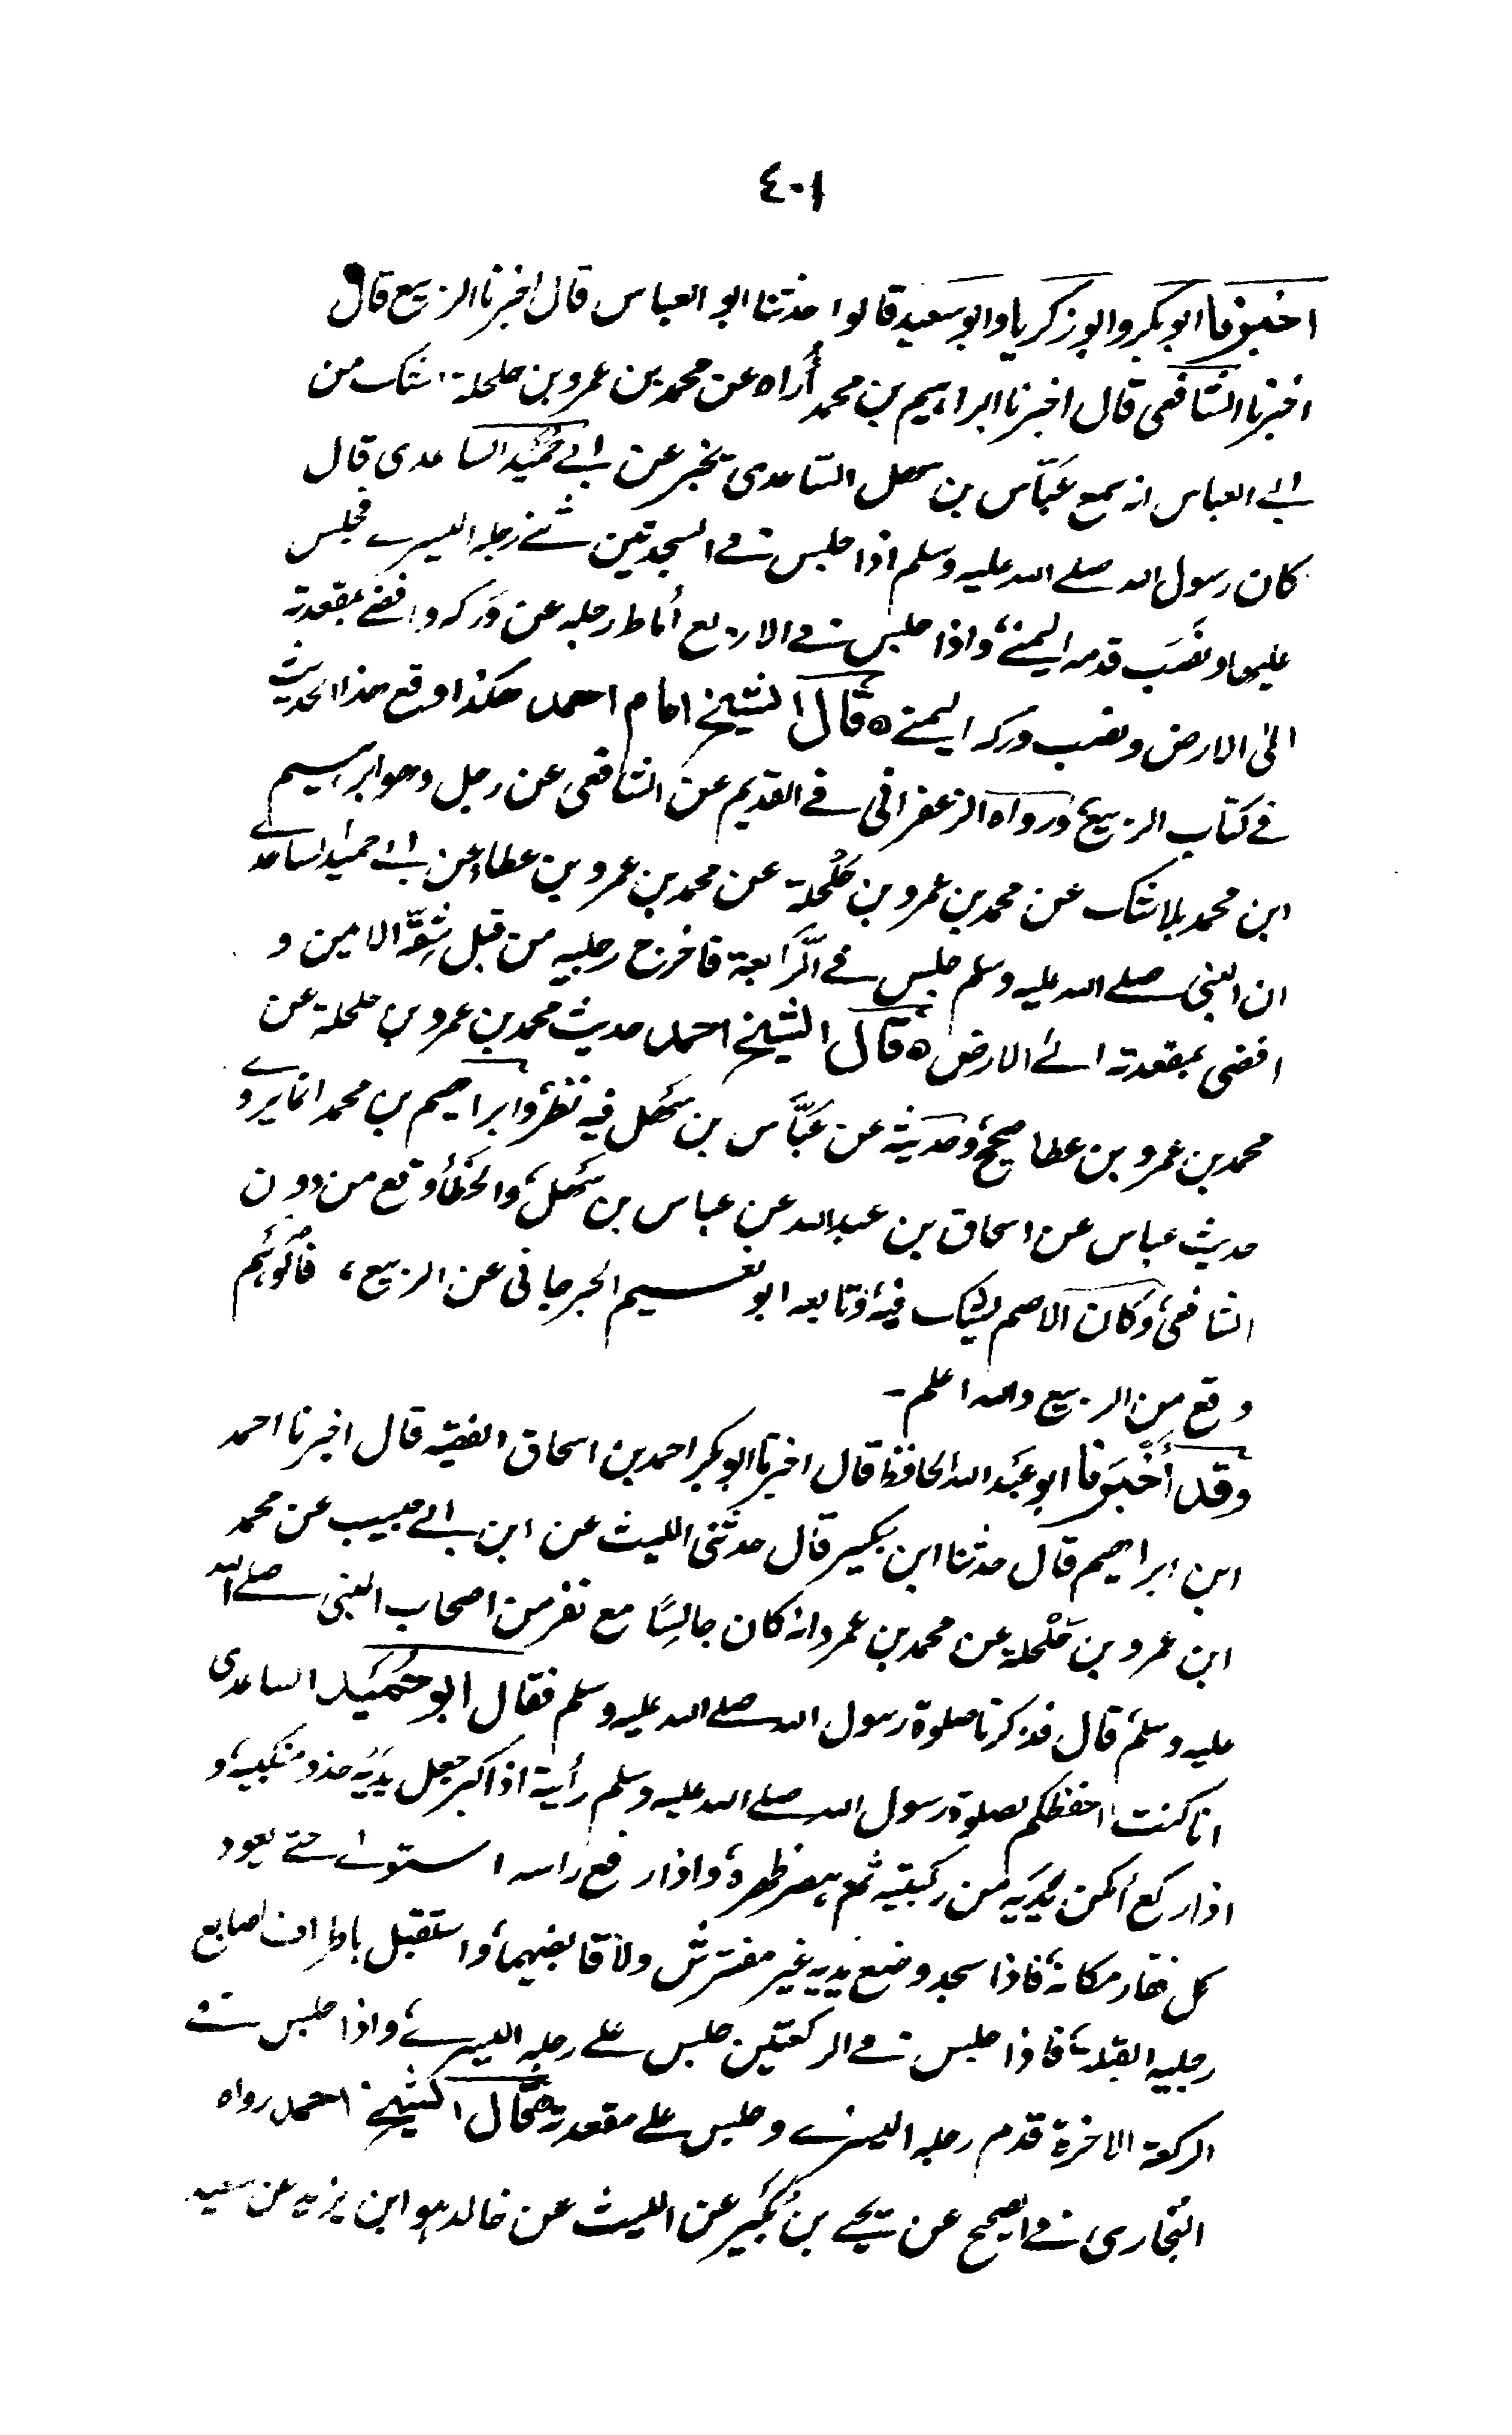 ٤٠١
اخبرنا ابو بكر وابو زكريا وابو سعيد قالوا حدثنا ابو العباس قال اخبرنا الربيع قال
اخبرنا الشافعى قال اخبرنا ابراهيم بن محمد أُراه عن محمد بن عمرو بن حلحلة، شك من
ابى العباس انه سمع عبَّاس بن سهل الساعدى يخبر عن ابى حُمَيد الساعدى قال
كان رسول الله صلے الله عليه وسلم اذا جلس فى السجدتين ثنى رجله اليسرى فجلس
عليها ونَصَبَ قدمه اليمنى، واذا جلس فى الاربع أماط رجليه عن وَركه وافضى بمقعدته
الى الارض ونصب وركه اليمنى ه قال الشيخ امام احمد هكذا وقع هذا الحديث
فى كتاب الربيع، ورواه الزعفرانى فى القديم عن الشافعى عن رجل وهو ابراهيم
ابن محمد بلا شك عن محمد بن عمرو بن حَلْحلة عن محمد بن عمرو بن عطاء عن ابى حميد الساعدى
ان النبى صلے الله عليه وسلم جلس فى الرَّابعة فاخرج رجليه من قبل شِقِّه الايمن و
افضى بمقعدته الى الارض ه قال الشيخ احمد حديث محمد بن عمرو بن حلحلة عن
محمد بن عمرو بن عطا صحيح، وحديثه عن عبَّاس بن سَهل فيه نظر، وابراهيم بن محمد انما يروى
حديث عباس عن اسحاق بن عبدالله عن عباس بن سَهل، والخطأ وقع من دون
الشافعى، وكان الاصم يشك فيه، وتابعه ابو نعسيم الجرجانى عن الربيع، فالوَهم
وقع من الربيع والله اعلم -
وقد أَخْبَرَنا ابو عَبد الله الحافظ قال اخبرنا ابو بكر احمد بن اسحاق الفقيه قال اخبرنا احمد
ابن ابراهيم قال حدثنا ابن بكير قال حدثنى الليث عن ابن ابى حبيب عن محمد
ابن عمرو بن حَلْحلة عن محمد بن عمرو انه كان جالِسًا مع نفر من اصحاب النبى صلے الله
عليه وسلم قال فذكرنا صلوة رسول الله صلے الله عليه وسلم فقال ابو حُمَيد الساعدى
انا كنت احفظكم لصلوة رسول الله صلے الله عليه وسلم رأيته اذا كبر جعل يدَيْه حذو منكبيه، و
اذا ركع أمكن يَدَيْه من ركبتيه ثم هصر ظهره، واذا رفع راسه استوى حتى يعود
كل فقار مكانه، فاذا سجد وضع يديه غير مفترش ولا قابضهما، واستقبل باطراف اصابع
رجليه القبلة، فاذا جلس فى الركعتين جلس على رجله اليسرى، واذا جلس فى
الركعة الاخرة قدم رجله اليسرى وجلس على مقعدته ه قال الشيخ احمد رواه
البخارى فى الصحيح عن يحيى بن بُكَير عن الليث عن خالد هو ابن يزيد عن سعيد